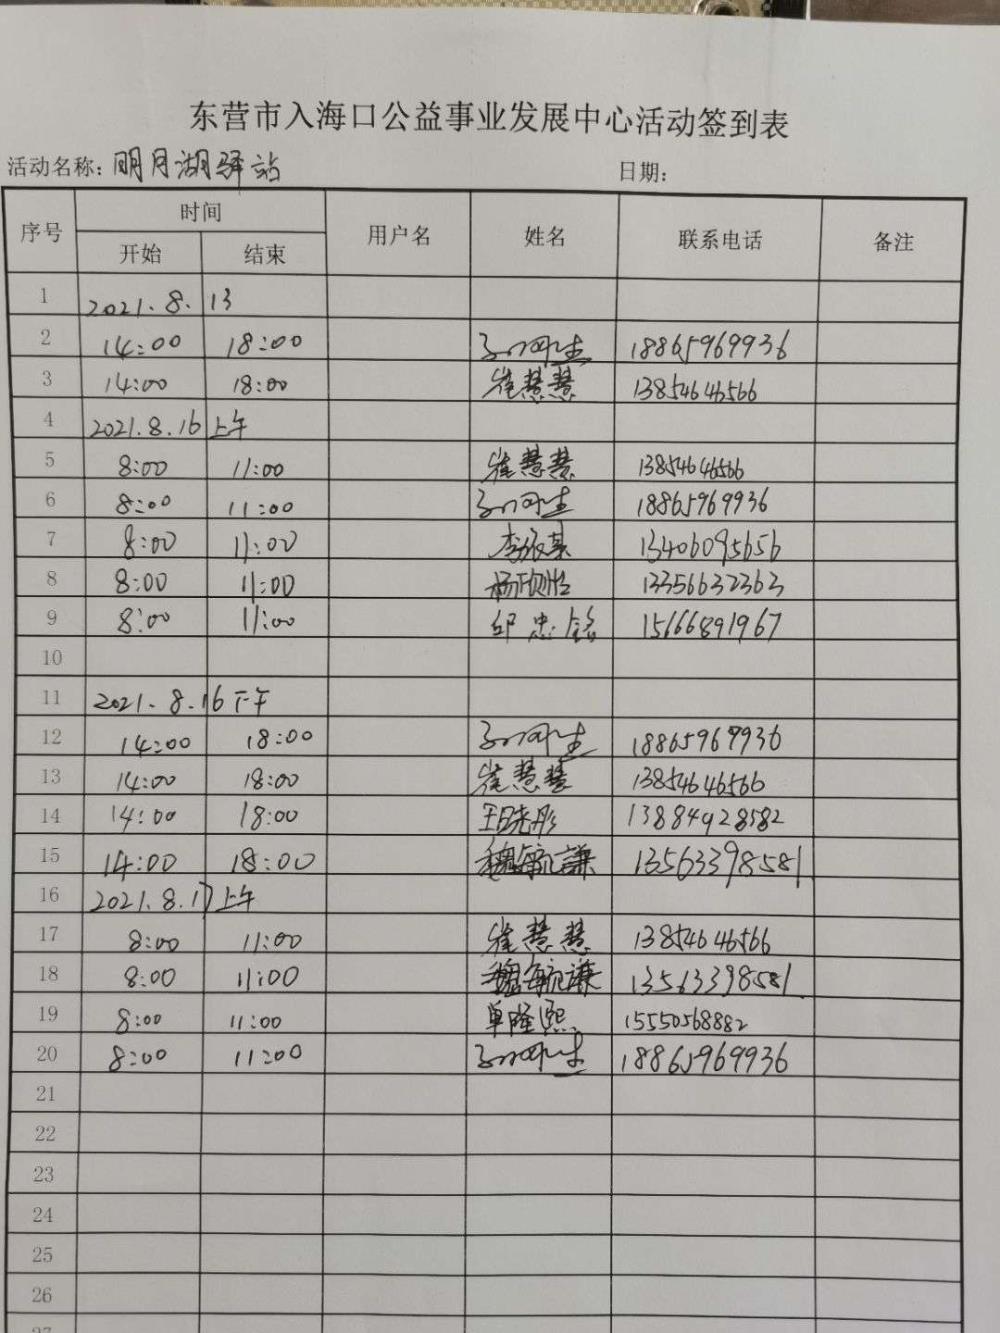 东营市入海口公益事业发展中心活动签到表
活动名称：明月湖驿站 日期：
序号 时间 用户名 姓名 联系电话 备注
开始 结束
1 2021.8.13
2 14:00 18:00 18865969936
3 14:00 18:00 崔慧慧 13854646566
4 2021.8.16 上午
5 8:00 11:00 崔慧慧 13854646566
6 8:00 11:00 18865969936
7 8:00 11:00 13406095656
8 8:00 11:00 杨欣怡 13356632363
9 8:00 11:00 邱忠铭 15166891967
10
11 2021.8.16 下午
12 14:00 18:00 18865969936
13 14:00 18:00 崔慧慧 13854646566
14 14:00 18:00 王晓彤 13884928582
15 14:00 18:00 魏毓谦 13563398581
16 2021.8.17 上午
17 8:00 11:00 崔慧慧 13854646566
18 8:00 11:00 魏毓谦 13563398581
19 8:00 11:00 单隆熙 15550568882
20 8:00 11:00 18865969936
21
22
23
24
25
26
27